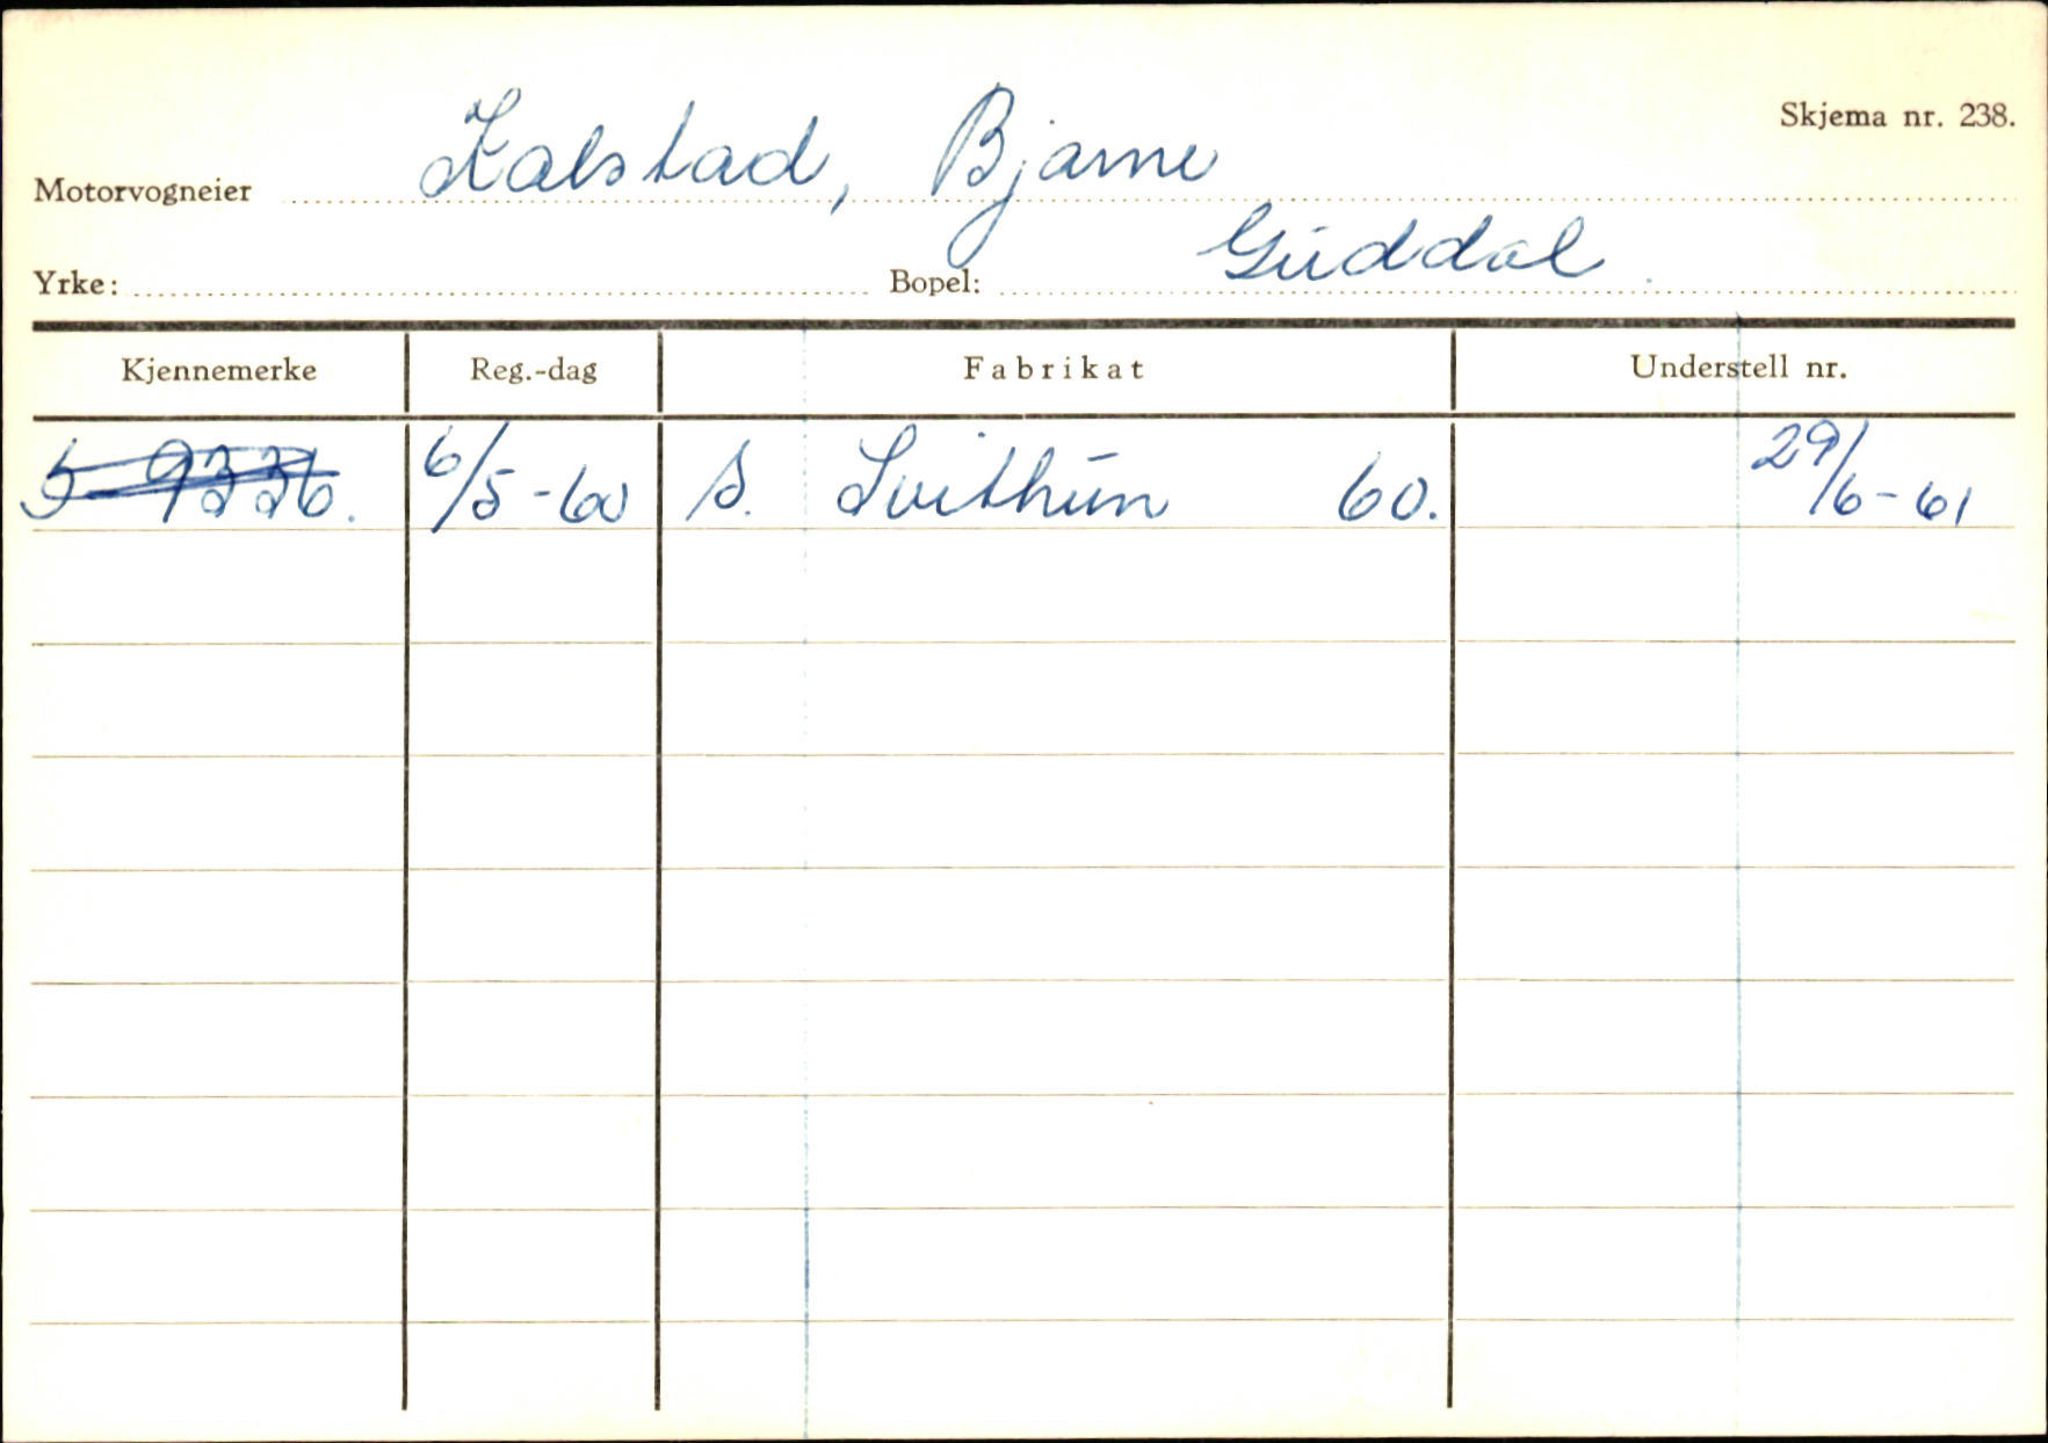 Skjema nr. 238.
Motorvogneier Kalstad, Bjarne
Yrke: Bopel: Guddal
Kjennemerke Reg.-dag Fabrikat Understell nr.
S-9336. 6/5-60 S. Svithun 60. 29/6-61